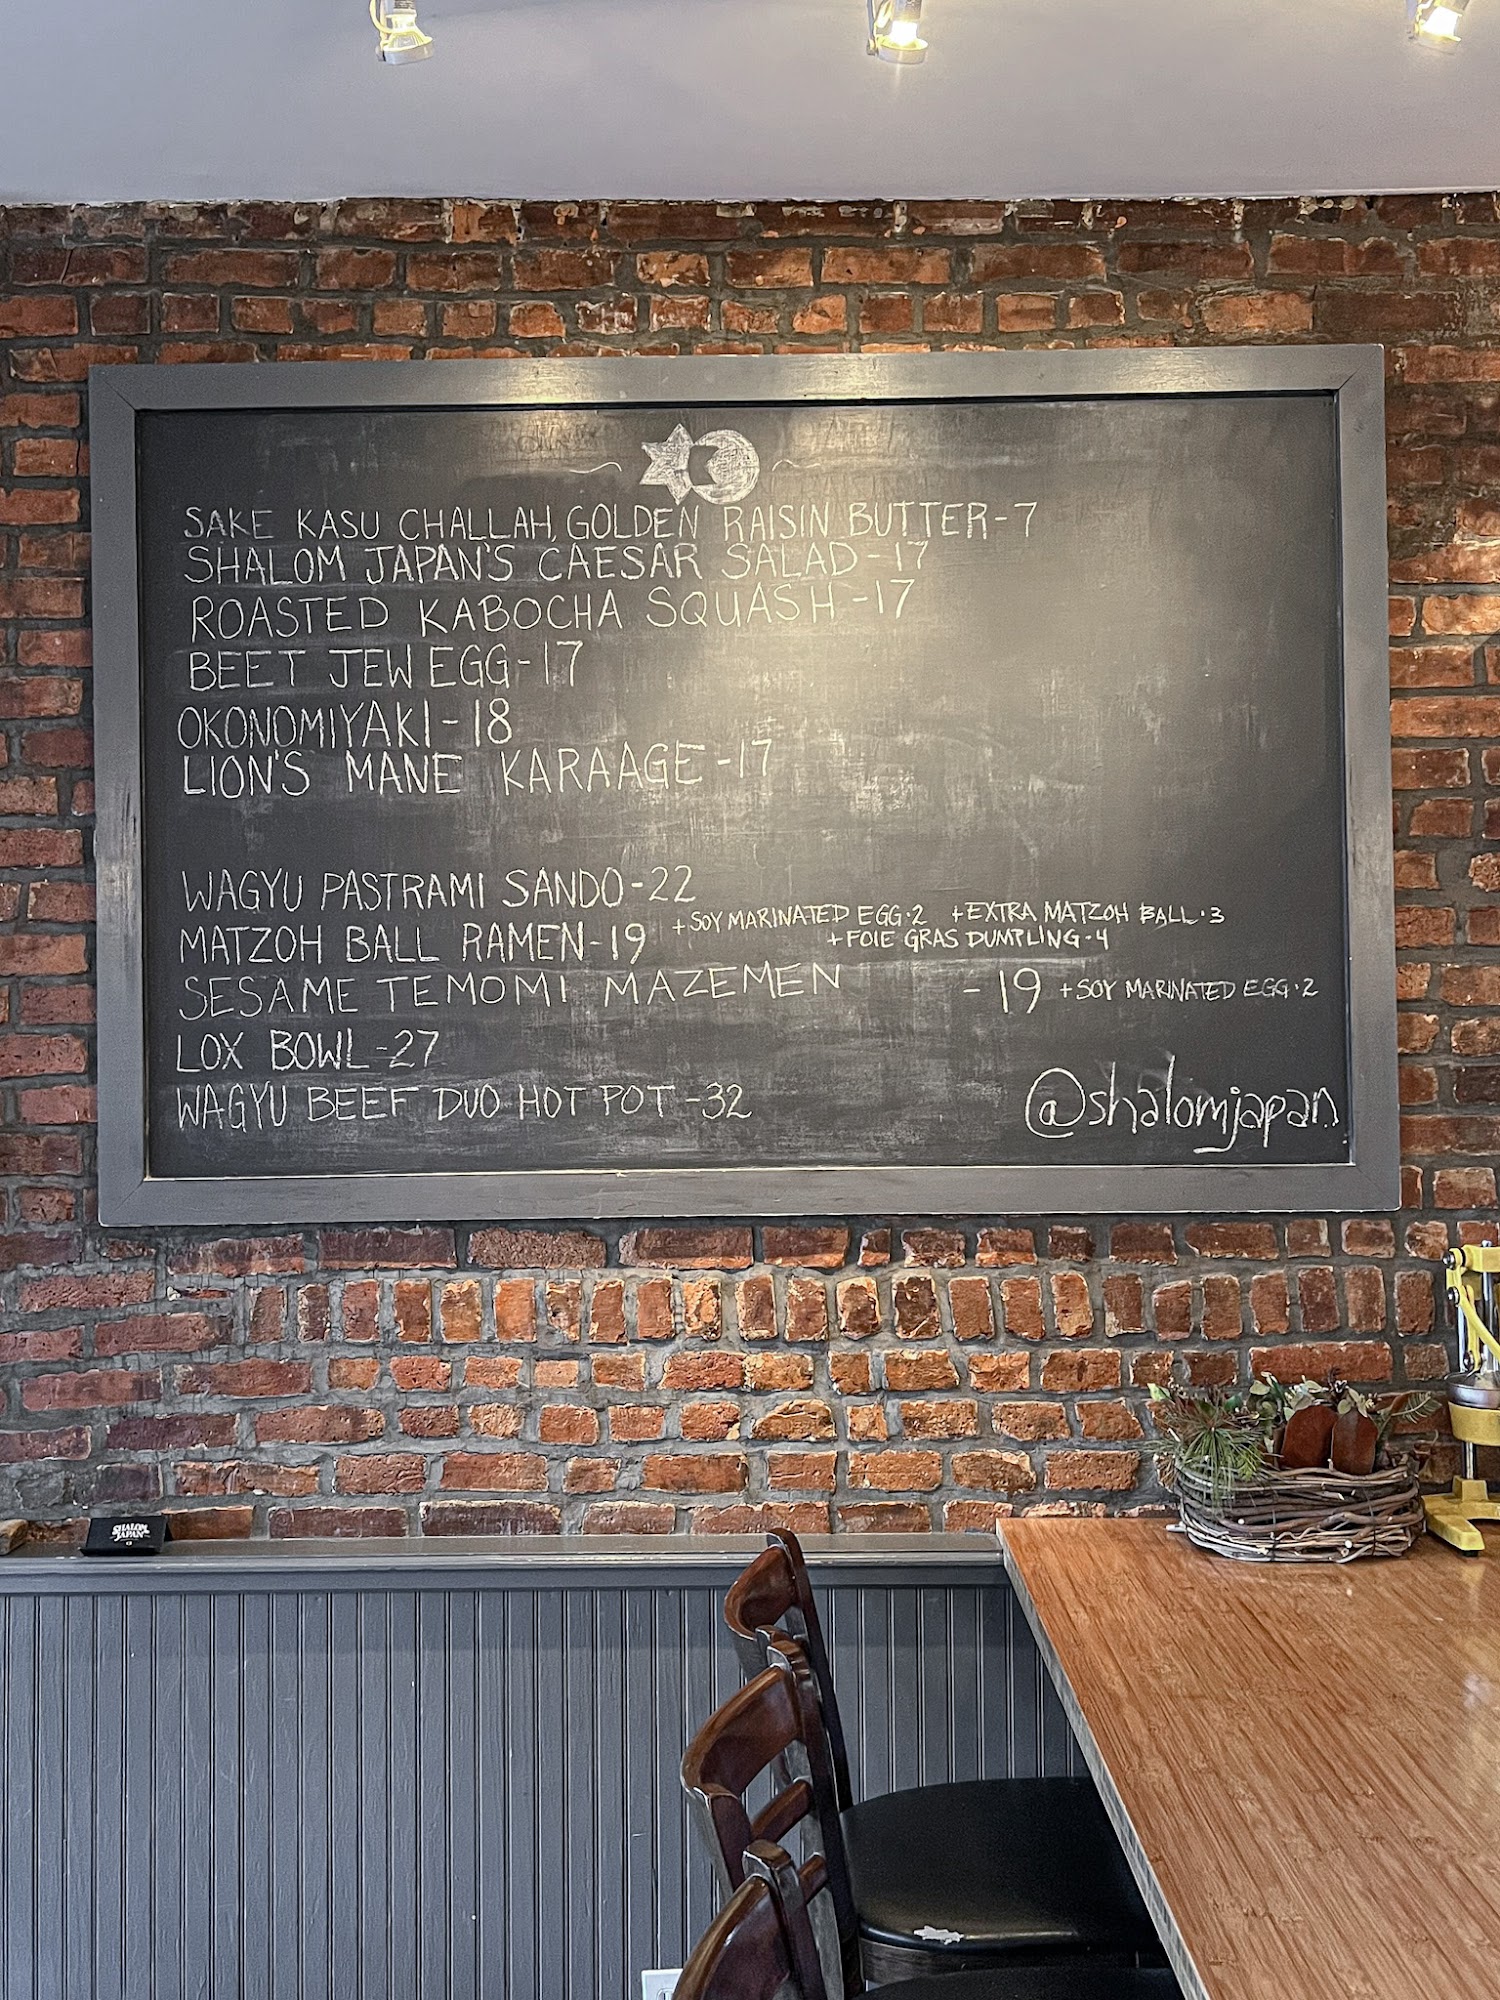 SAKE KASU CHALLAH, GOLDEN RAISIN BUTTER-7
SHALOM JAPAN'S CAESAR SALAD-17
ROASTED KABOCHA SQUASH-17
BEET JEW EGG-17
OKONOMIYAKI-18
LION'S MANE KARAAGE-17
WAGYU PASTRAMI SANDO-22
MATZOH BALL RAMEN-19 +SOY MARINATED EGG·2 +EXTRA MATZOH BALL·3
+FOIE GRAS DUMPLING·4
SESAME TEMOMI MAZEMEN -19 +SOY MARINATED EGG·2
LOX BOWL-27
WAGYU BEEF DUO HOT POT-32
@shalomjapan
SHALOM
JAPAN